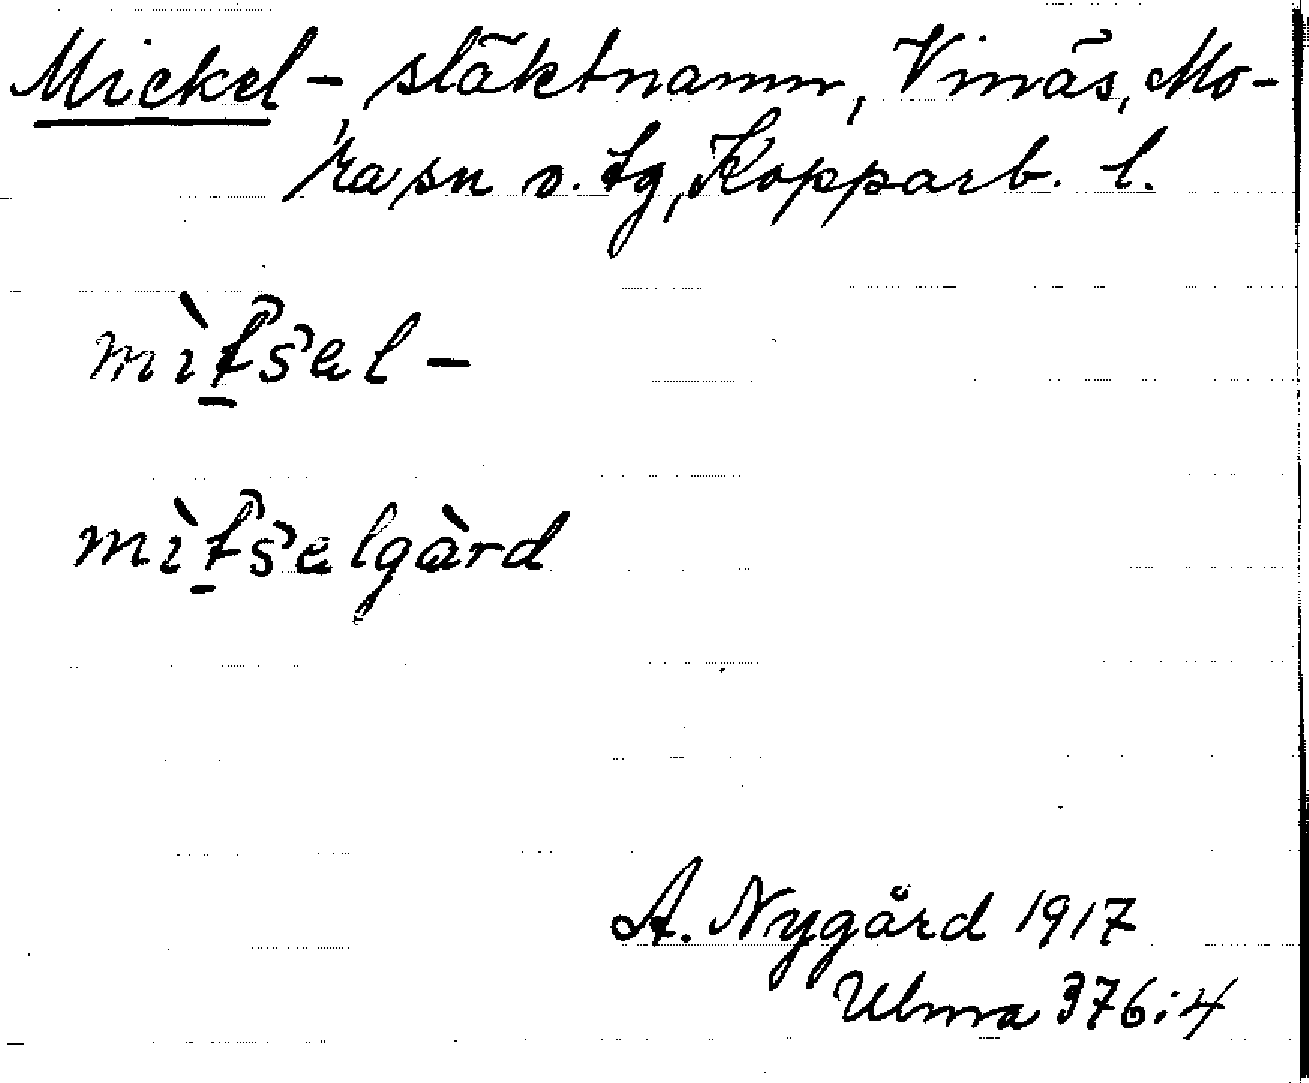 Mickel-, släktnamn, Vinäs, Mo-
ra sn o. tg, Kopparb. l.
mìt̠s̆el-
mìt̠s̆elgàrd
A. Nygård 1917
Ulma 376:4